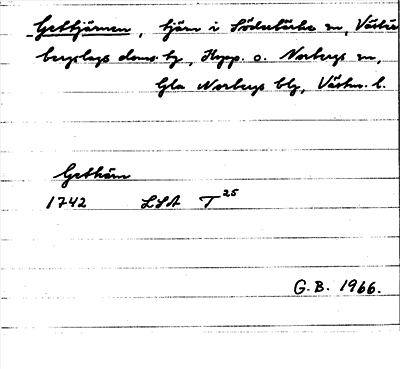 Gettjärnen, tjärn i Söderbärke sn, Väster
bergslags doms. tg, Kopp. o. Norbergs sn,
Gla Norbergs blg, Västm. l.
Gethärn
1742 LSA T 25
G.B. 1966.